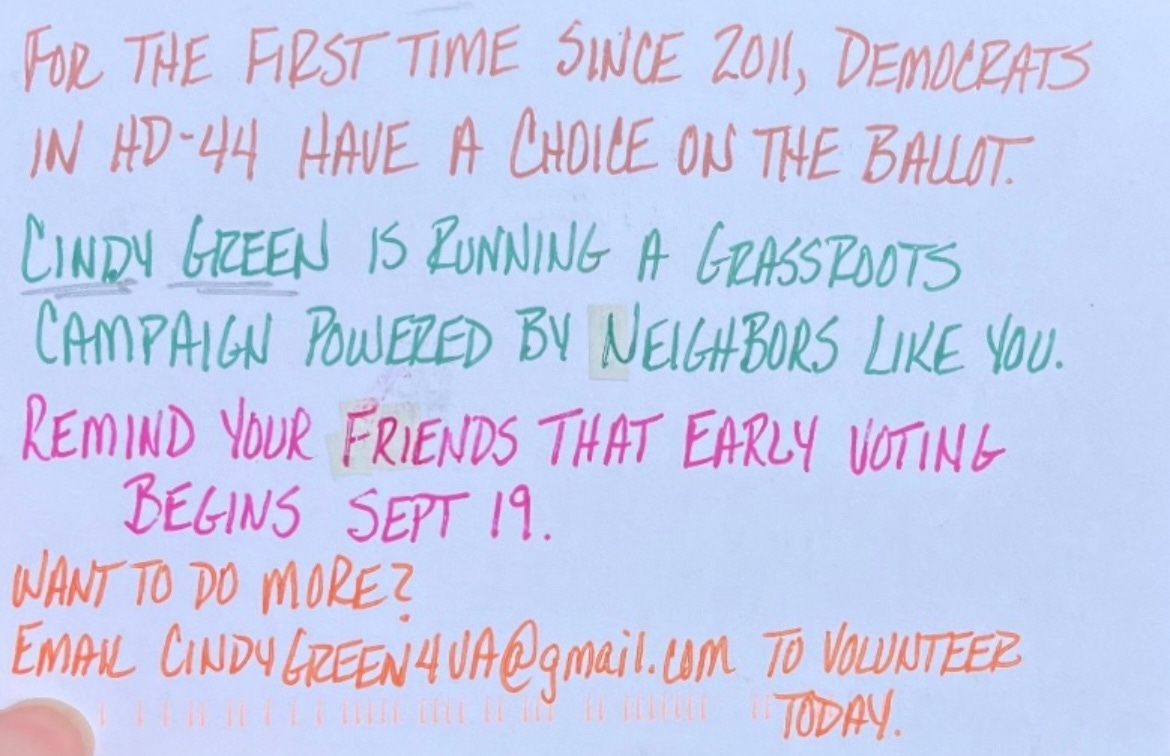 FOR THE FIRST TIME SINCE 2011, DEMOCRATS
IN HD-44 HAVE A CHOICE ON THE BALLOT.
CINDY GREEN IS RUNNING A GRASSROOTS
CAMPAIGN POWERED BY NEIGHBORS LIKE YOU.
REMIND YOUR FRIENDS THAT EARLY VOTING
BEGINS SEPT 19.
WANT TO DO MORE?
EMAIL CINDYGREEN4VA@gmail.com TO VOLUNTEER
TODAY.